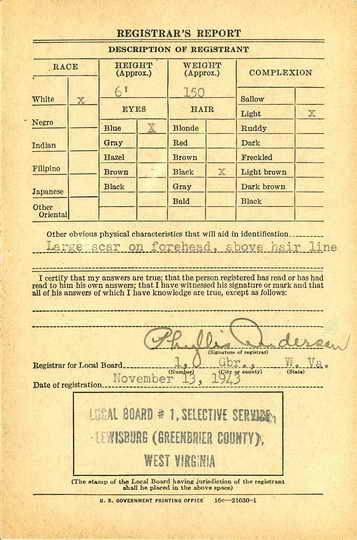 REGISTRAR'S REPORT
DESCRIPTION OF REGISTRANT
RACE HEIGHT (Approx.) WEIGHT (Approx.) COMPLEXION
6' 150
White X EYES HAIR Sallow
Light X
Negro Blue X Blonde Ruddy
Indian Gray Red Dark
Hazel Brown Freckled
Filipino Brown Black X Light brown
Japanese Black Gray Dark brown
Other Oriental Bald Black
Other obvious physical characteristics that will aid in identification
Large scar on forehead, above hair line
I certify that my answers are true; that the person registered has read or has had
read to him his own answers; that I have witnessed his signature or mark and that
all of his answers of which I have knowledge are true, except as follows:
Phyllis Anderson
(Signature of registrar)
Registrar for Local Board 1, Gbr., W. Va.
(Number) (City or county) (State)
Date of registration November 13, 1943
LOCAL BOARD # 1, SELECTIVE SERVICE
LEWISBURG (GREENBRIER COUNTY),
WEST VIRGINIA
(The stamp of the Local Board having jurisdiction of the registrant
shall be placed in the above space)
U. S. GOVERNMENT PRINTING OFFICE 16c—21630-1